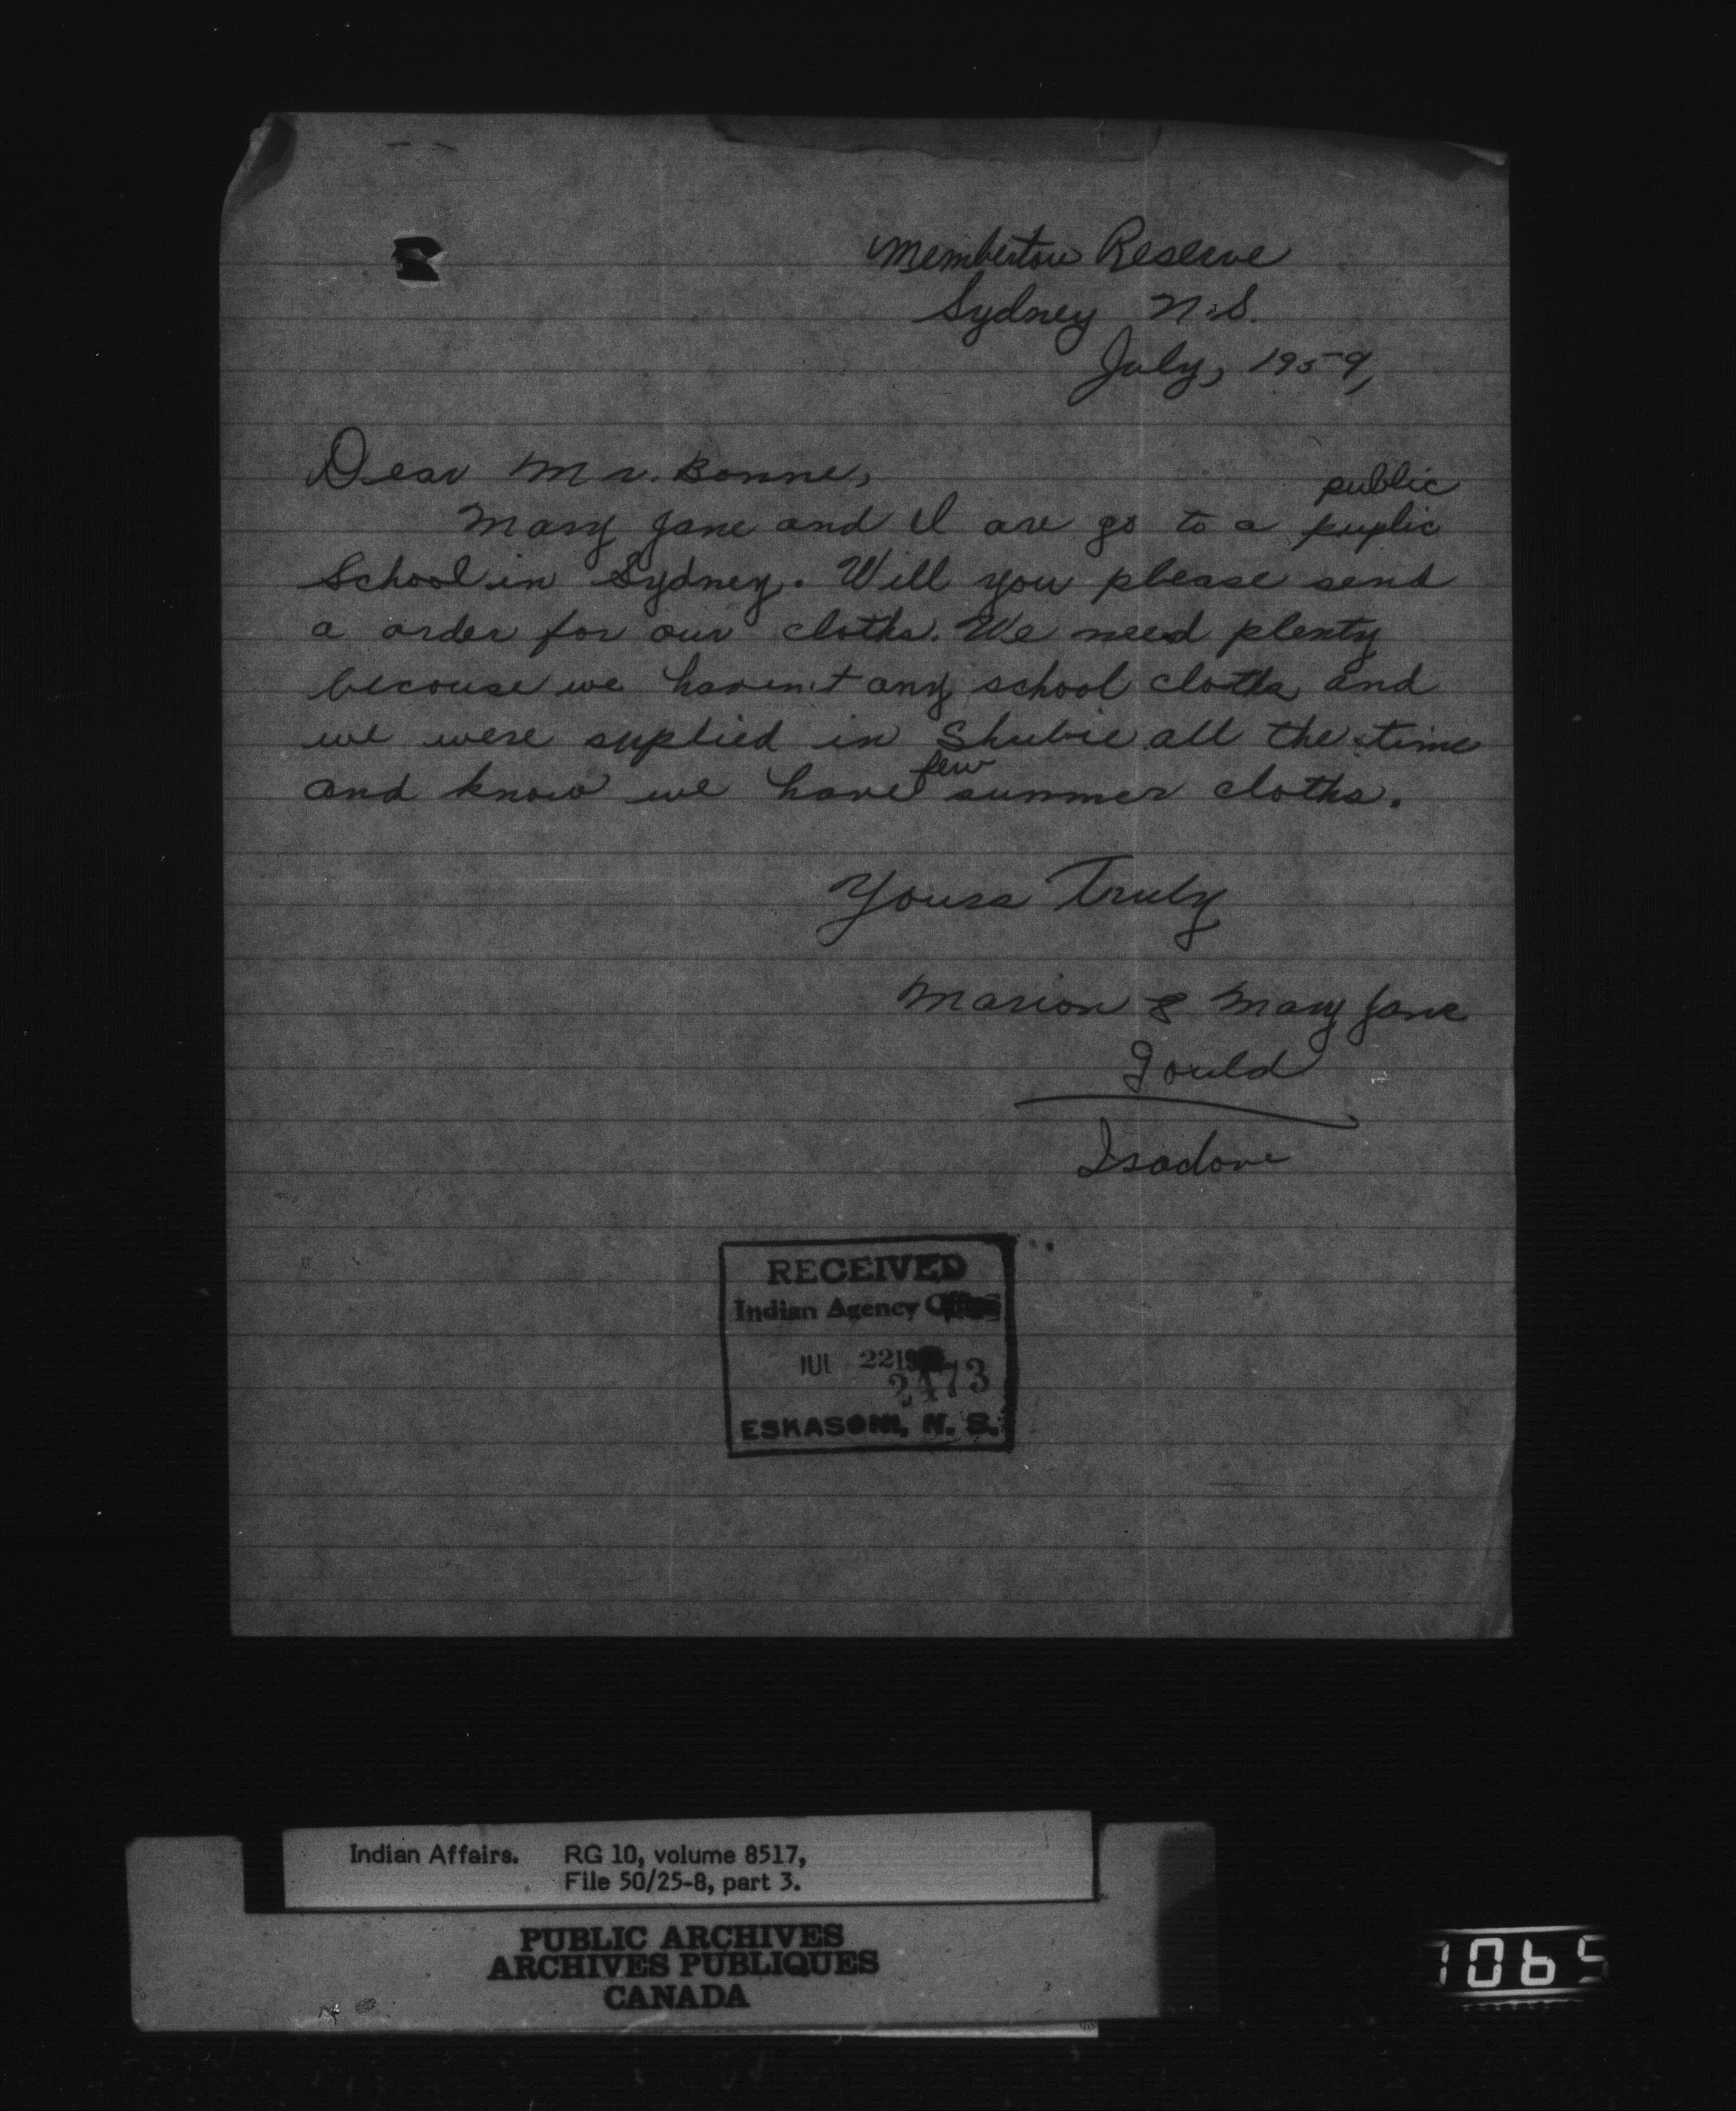 Memberton Reserve
Sydney N.S.
July, 1959,
Dear Mr. Bonne,
public
Mary Jane and I are go to a puplic
School in Sydney. Will you please send
a order for our cloths. We need plenty
becouse we haven't any school cloths and
we were suplied in Shubie all the time
few
and know we have summer cloths.
Yours Truly
Marion & Mary Jane
Gould
Isadore
RECEIVED
Indian Agency Office
JUL 22 19
2473
ESKASONI, N. S.
Indian Affairs. RG 10, volume 8517,
File 50/25-8, part 3.
PUBLIC ARCHIVES
ARCHIVES PUBLIQUES
CANADA
1065